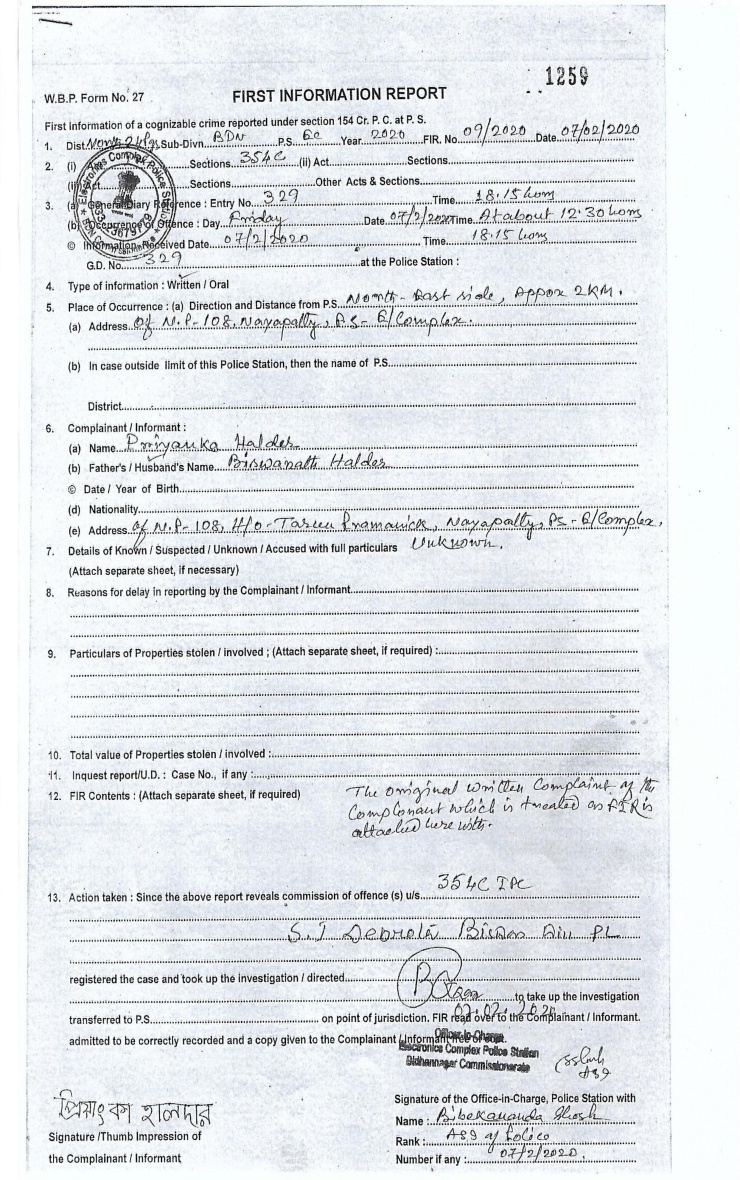 1259
W.B.P. Form No. 27 FIRST INFORMATION REPORT
First information of a cognizable crime reported under section 154 Cr. P. C. at P. S.
1. Dist. North 24 Pgs Sub-Divn. BDN P.S. EC Year 2020 FIR. No. 09/2020 Date 07/02/2020
2. (i) Sections 354C (ii) Act Sections
(ii) Act Sections Other Acts & Sections
3. (a) General Diary Reference : Entry No. 329 Time 18.15 hrs
(b) Occurrence of Offence : Day Friday Date 07/2/2020 Time At about 12.30 hrs
© Information Received Date 07/2/2020 Time 18.15 hrs
G.D. No. 329 at the Police Station :
4. Type of information : Written / Oral
5. Place of Occurrence : (a) Direction and Distance from P.S. North-East side, Appox 2KM.
(a) Address Of N.P-108, Nayapatty, PS- E/Complex.
(b) In case outside limit of this Police Station, then the name of P.S.
District
6. Complainant / Informant :
(a) Name Priyanka Halder
(b) Father's / Husband's Name Biswanath Halder
© Date / Year of Birth
(d) Nationality
(e) Address of N.P-108, H/o- Pramanick, Nayapatty, PS - E/Complex,
7. Details of Known / Suspected / Unknown / Accused with full particulars Unknown.
(Attach separate sheet, if necessary)
8. Reasons for delay in reporting by the Complainant / Informant
9. Particulars of Properties stolen / involved ; (Attach separate sheet, if required) :
10. Total value of Properties stolen / involved :
11. Inquest report/U.D. : Case No., if any :
12. FIR Contents : (Attach separate sheet, if required) The original written Complaint of the
Complonaut which is treated as FIR is
attached here with.
13. Action taken : Since the above report reveals commission of offence (s) u/s. 354C IPC
S.I Biswas
registered the case and took up the investigation / directed
to take up the investigation
transferred to P.S. on point of jurisdiction. FIR read over to the Complainant / Informant.
07.02.2020
admitted to be correctly recorded and a copy given to the Complainant / Informant free of cost.
Officer-in-Charge
Electronics Complex Police Station
Bidhannagar Commissionerate
প্রিয়াংকা হালদার
Signature /Thumb Impression of
the Complainant / Informant
Signature of the Office-in-Charge, Police Station with
Name : Bibekananda Ghosh
Rank : ASI of Police
Number if any : 07/2/2020.